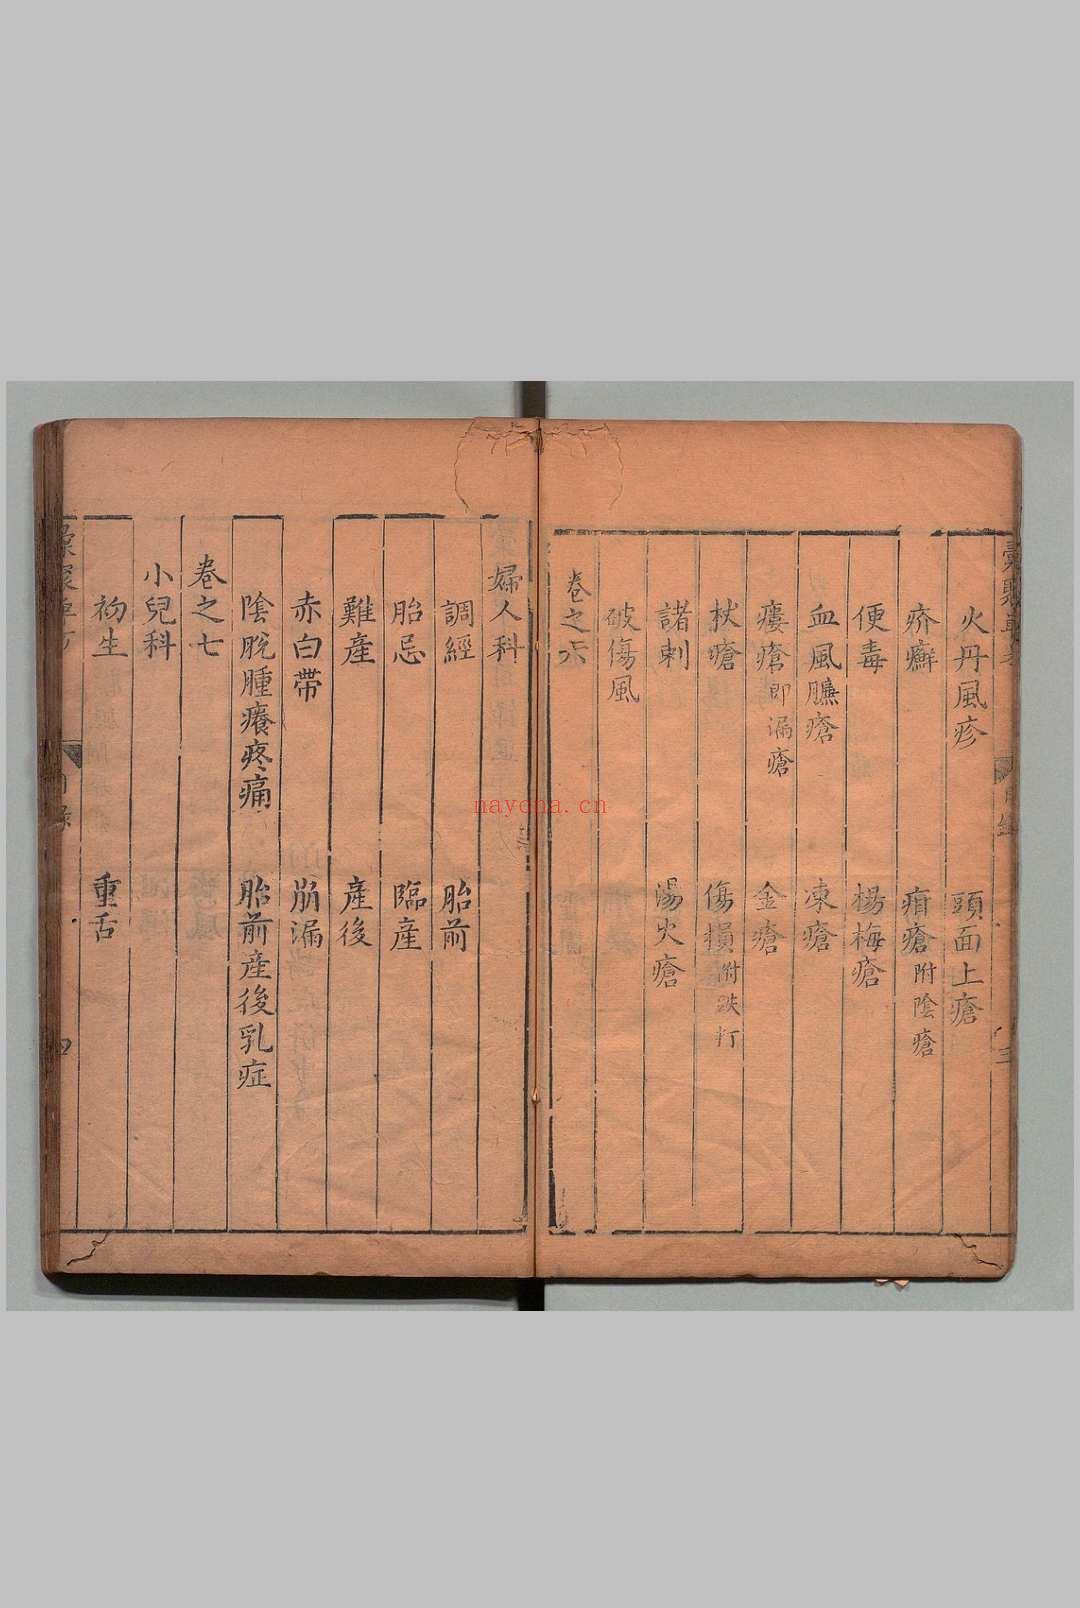 火丹風疹 頭面上瘡
疥癬 疳瘡附陰瘡
便毒 楊梅瘡
血風臁瘡 凍瘡
瘻瘡即漏瘡 金瘡
杖瘡 傷損附跌打
諸刺 湯火瘡
破傷風
卷之六
婦人科
調經 胎前
胎忌 臨產
難產 產後
赤白帶 崩漏
陰脫腫癢疼痛 胎前產後乳症
卷之七
小兒科
初生 重舌
nayona.cn